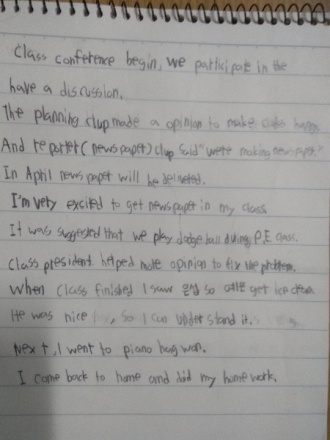 Class conference begin, we participate in the
have a discussion.
The planning clup made a opinion to make class happy.
And reporter(newspaper) clup said "were making newspaper"
In April newspaper will be delivered.
I'm very excited to get newspaper in my class
It was suggested that we play dodge ball during P.E class.
Class president helped more opinion to fix the problem.
When class finished I saw so get ice cream
He was nice , so I can understand it.
Next, I went to piano hagwon.
I come back to home and did my homework.